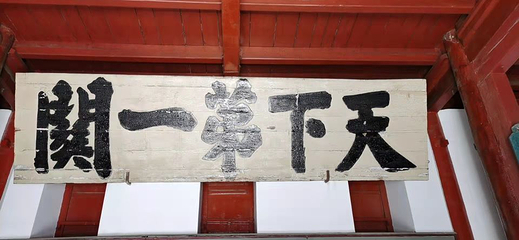 天下第一關